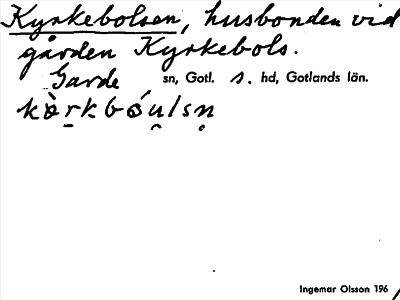 Kyrkebolsen, husbonden vid
gården Kyrkebols.
Garde sn, Gotl. s. hd, Gotlands län.
kö̀rkbóulsn
Ingemar Olsson 196